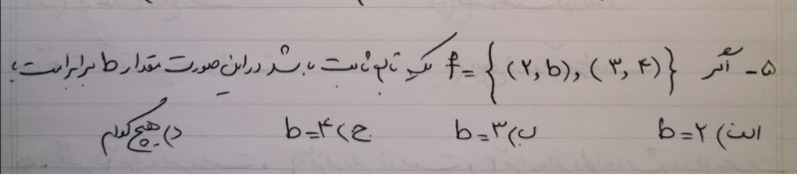 ۵- اگر f = { (۲, b), (۳, ۴) } یک تابع ثابت باشد در این صورت مقدار b برابر است با
الف) b=۲ ب) b=۳ ج) b=۴ د) هیچ کدام